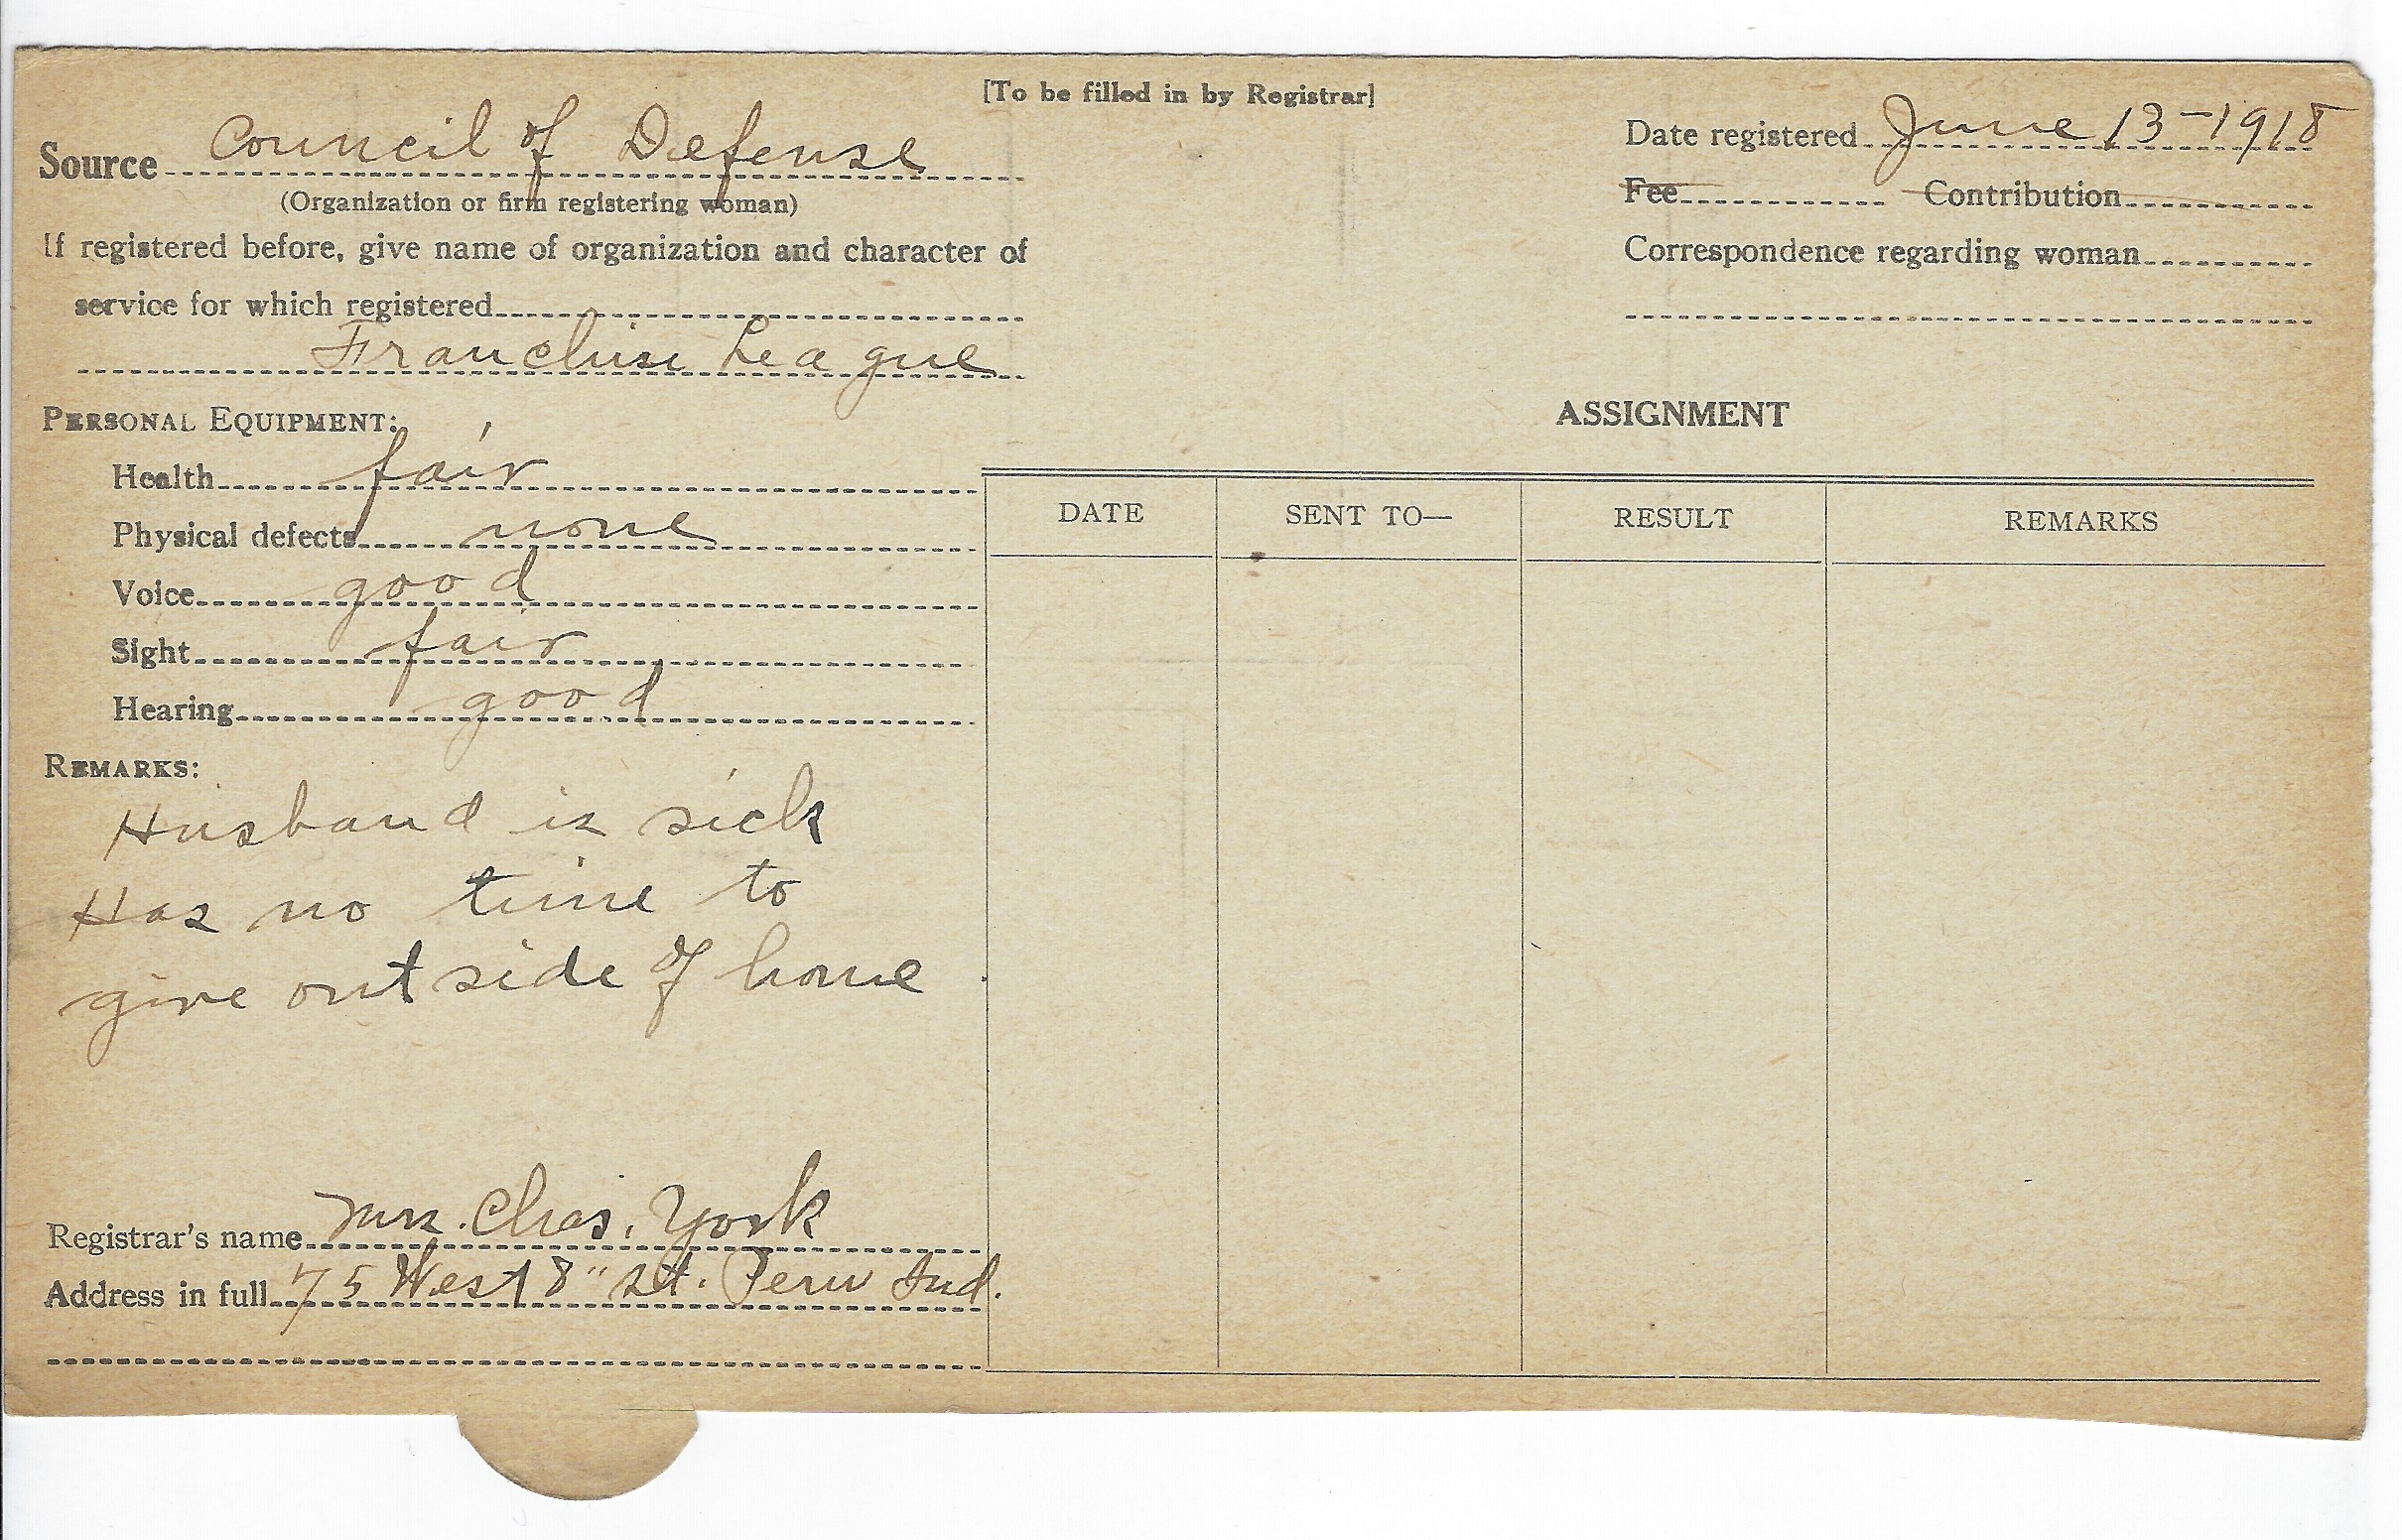 [To be filled in by Registrar]
Source Council of Defense
(Organization or firm registering woman)
If registered before, give name of organization and character of
service for which registered
Franchise League
PERSONAL EQUIPMENT:
Health fair
Physical defects none
Voice good
Sight fair
Hearing good
REMARKS:
Husband is sick
Has no time to
give outside of home
Registrar's name Mrs. Chas. York
Address in full 75 West 8" St. Peru Ind.
Date registered June 13-1918
Fee Contribution
Correspondence regarding woman
ASSIGNMENT
DATE SENT TO— RESULT REMARKS